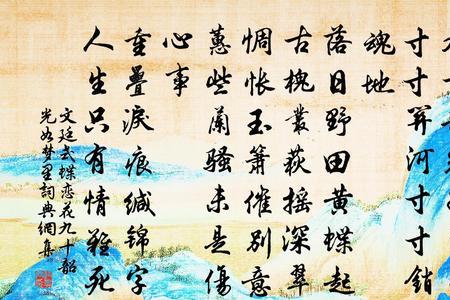 寸寸關河寸寸銷
魂地
落日野田黄蝶起
古槐叢荻摇深翠
惆悵玉簫催別意
蕙些蘭騷未是傷
心事
重疊淚痕緘錦字
人生只有情難死
文廷式蝶恋花九十韶
光如梦里詞典網集